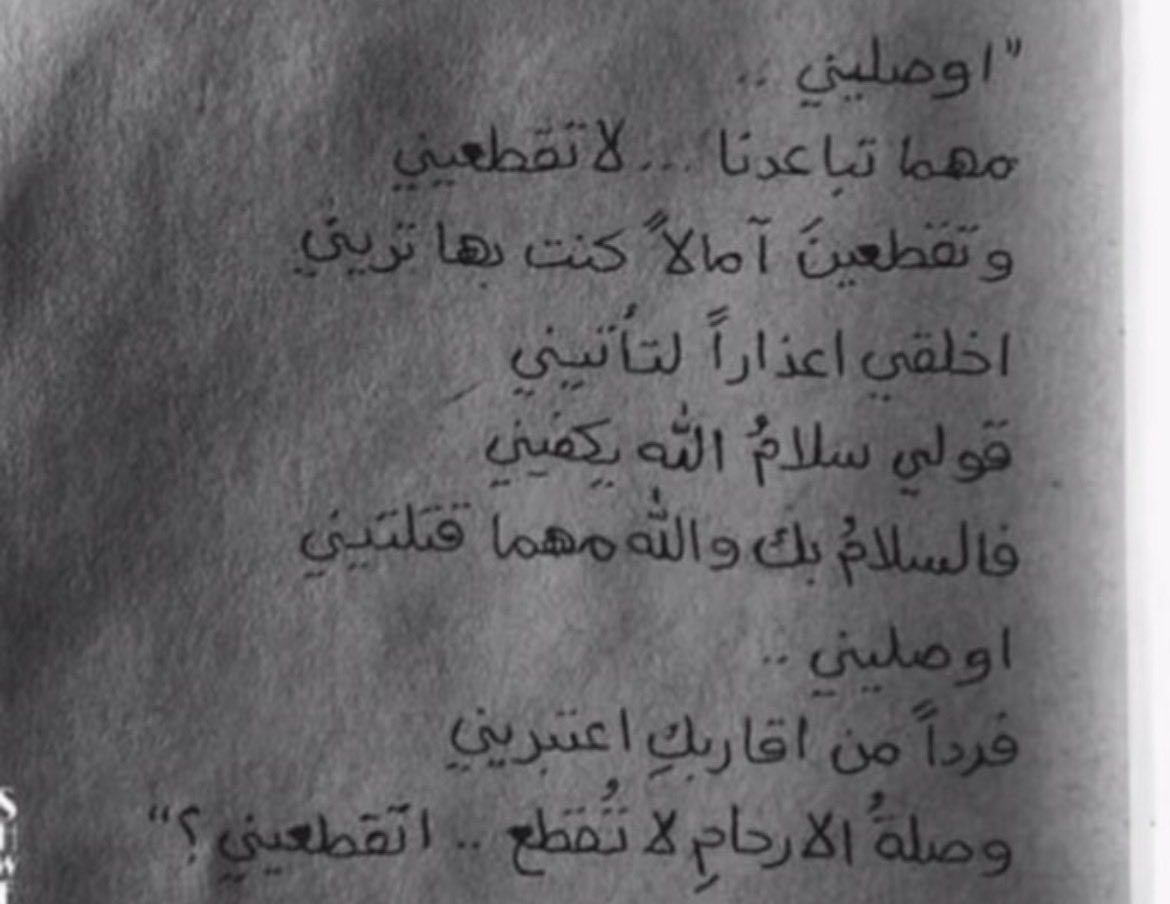 "اوصليني ..
مهما تباعدنا ... لا تقطعيني
وتقطعينَ آمالاً كنت بها تريني
اخلقي اعذاراً لتأتيني
قولي سلامُ الله يكفيني
فالسلامُ بك والله مهما قتلتيني
اوصليني ..
فرداً من اقاربكِ اعتبريني
وصلةُ الارحامِ لا تُقطع .. اتقطعيني ؟"